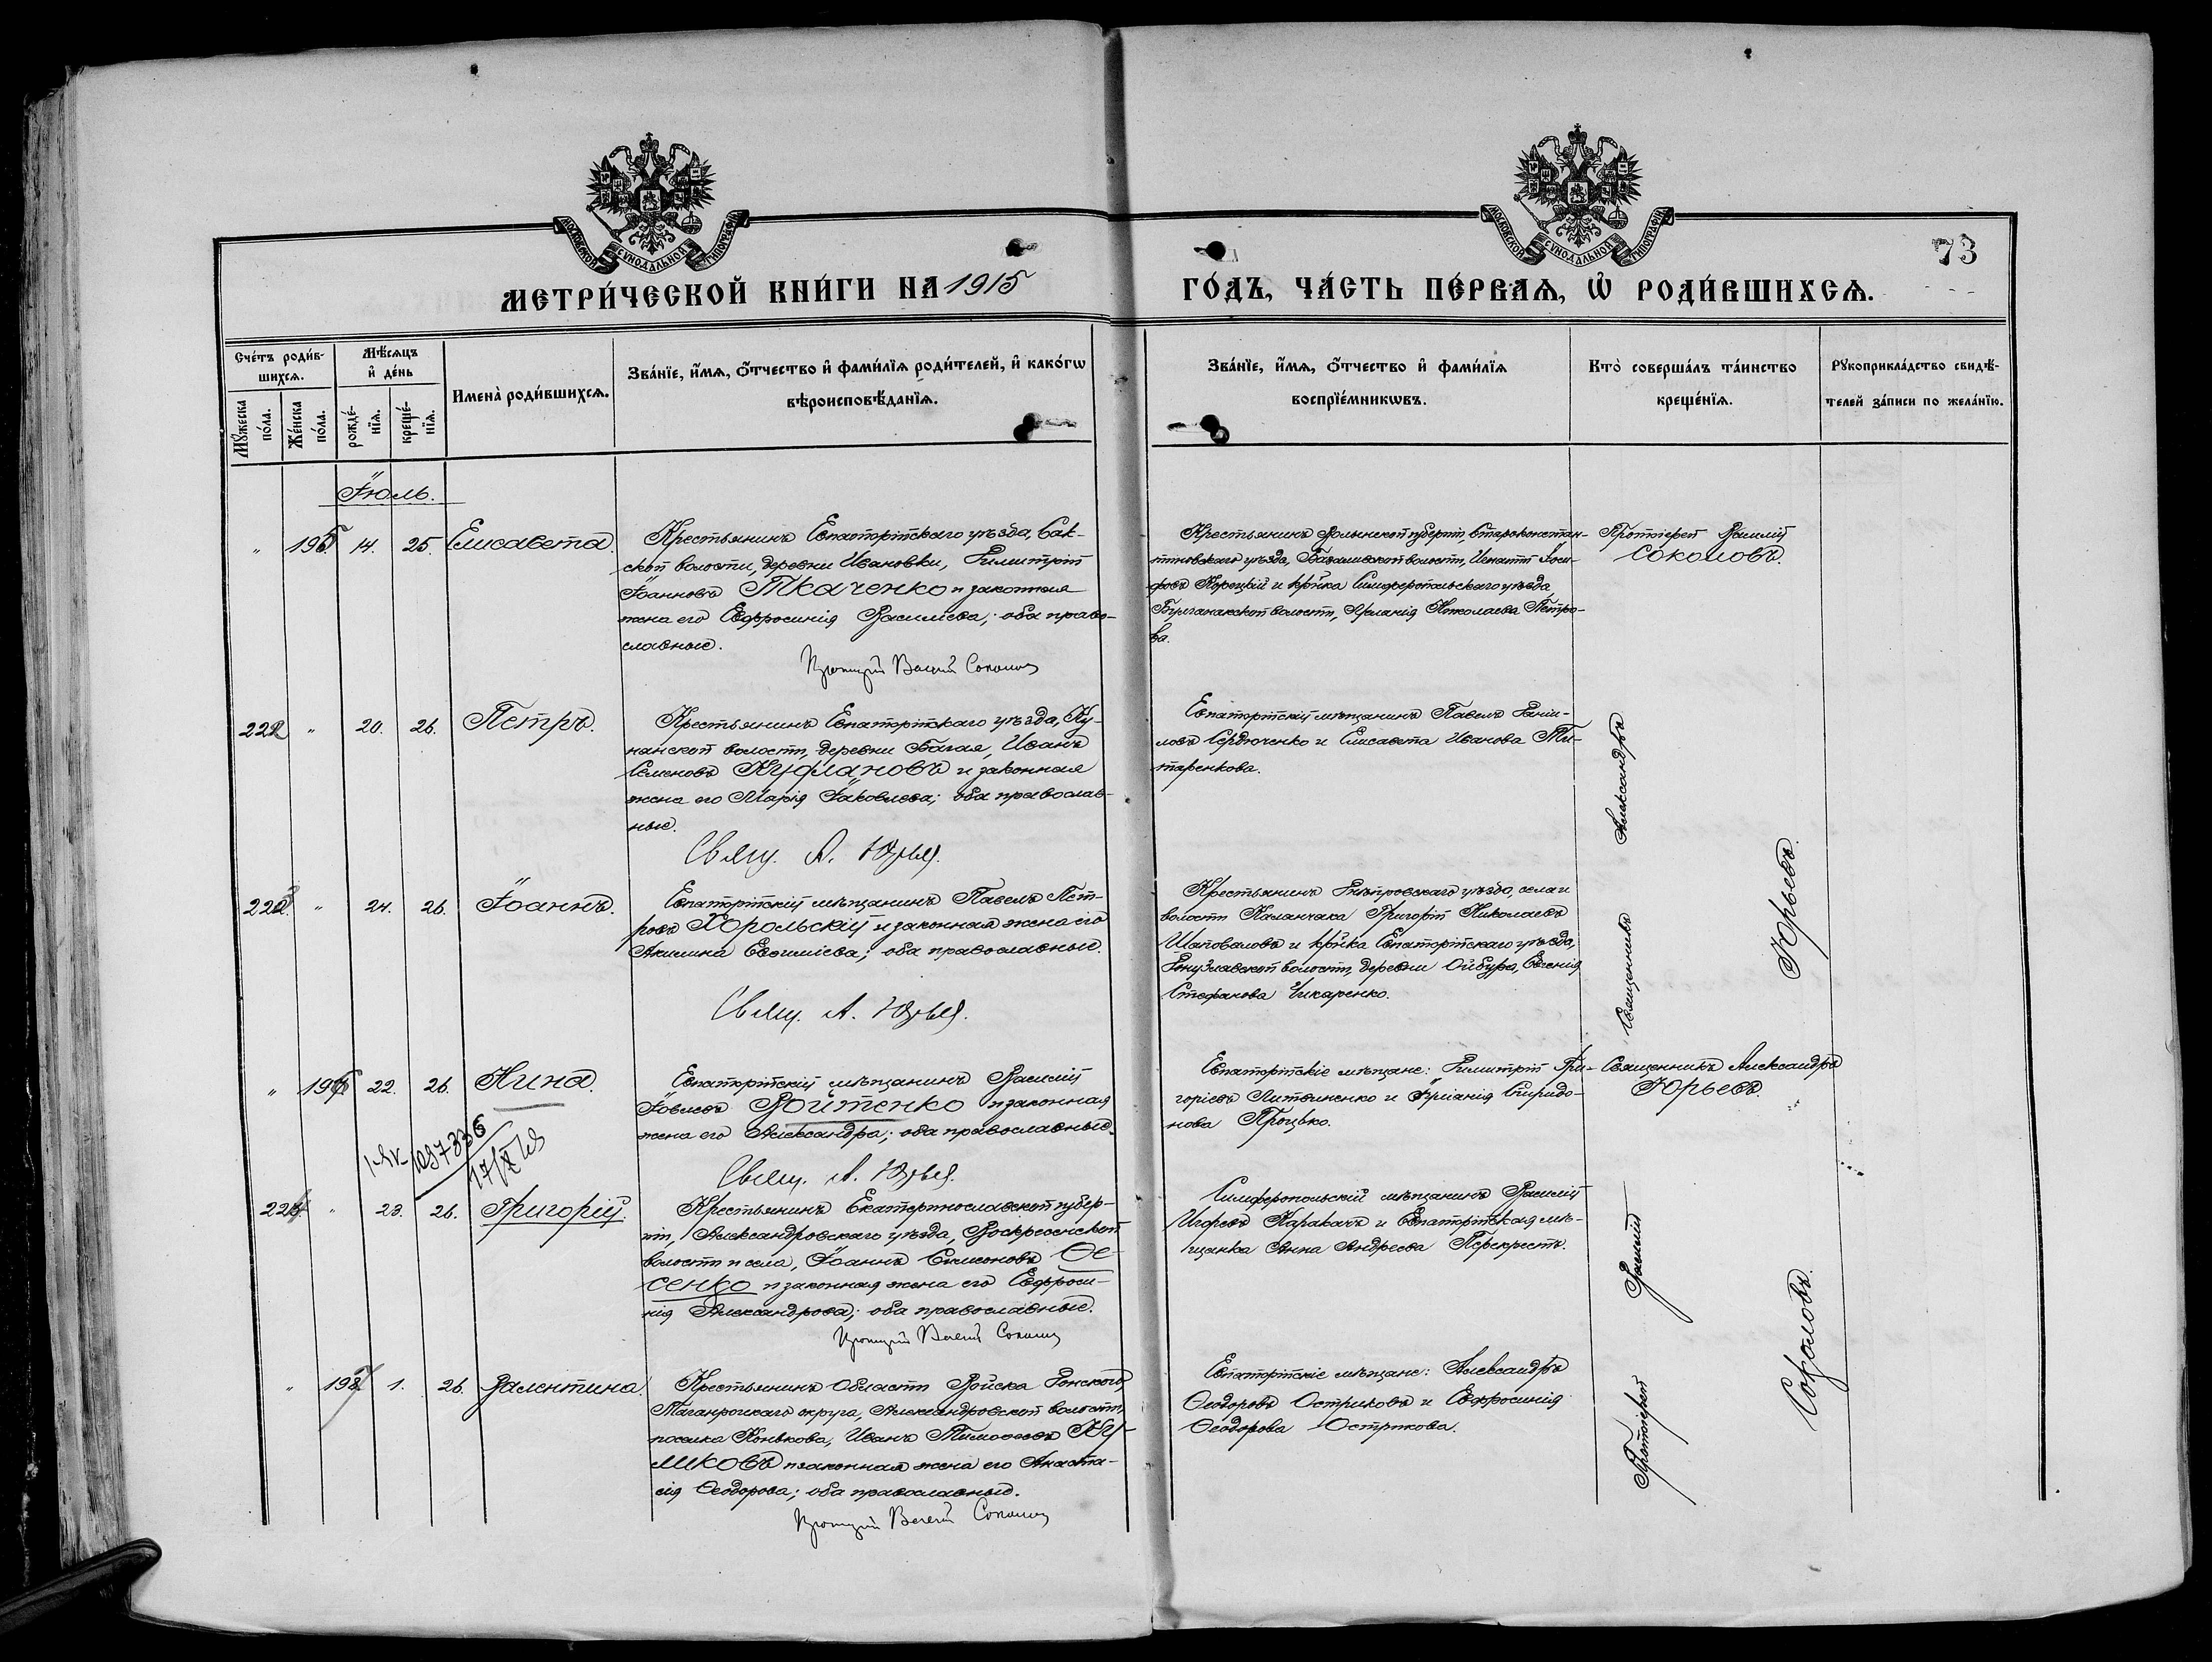 МОСКОВСКОЙ СѴНОДАЛЬНОЙ ТИПОГРАФІИ
МОСКОВСКОЙ СѴНОДАЛЬНОЙ ТИПОГРАФІИ
73
МЕТРИ́ЧЕСКОЙ КНИ́ГИ НА 1915
ГО́ДЪ, ЧА́СТЬ ПЕ́РВАѦ, Ѡ҆ РОДИ́ВШИХСѦ.
Сче́тъ роди́в-
шихсѧ.
Мѣ́сѧцъ
и҆ де́нь
Имена̀ роди́вшихсѧ.
Зва́нїе, и҆́мѧ, ѻ҆́тчество и҆ фами́лїѧ роди́телей, и҆ како́гѡ
вѣроисповѣ́данїѧ.
Мꙋ́жеска
по́ла.
Же́нска
по́ла.
рожде́-
нїѧ.
креще́-
нїѧ.
Зва́нїе, и҆́мѧ, ѻ҆́тчество и҆ фами́лїѧ
воспрїе́мникѡвъ.
Кто̀ соверша́лъ та́инство
креще́нїѧ.
Рꙋкоприкла́дство свидѣ́-
телей за́писи по жела́нїю.
Іюль.
„ 195 14. 25. Елисавета.
Крестьянинъ Евпаторійскаго уѣзда, Сак-
ской волости, деревни Ивановки, Димитрій
Іоанновъ Ткаченко и законная
жена его Евфросинія Василіева; оба право-
славные.
Протоіерей Василій Соколовъ
Крестьянинъ Волынской губерніи, Староконстан-
тиновскаго уѣзда, волости, Игнатій Іоси-
фовъ Корецкій и кр-ка Симферопольскаго уѣзда
Булганакской волости, Николаева Петро-
ва.
Протоіерей Василій
Соколовъ.
222 „ 20. 26. Петръ.
Крестьянинъ Евпаторійскаго уѣзда, Ку-
нанской волости, деревни Багая, Иванъ
Семеновъ Куфлановъ и законная
жена его Марія Іаковлева; оба православ-
ные.
Свящ. А. Юрьев.
Евпаторійскій мѣщанинъ Павелъ Дани-
ловъ Сердюченко и Елисавета Иванова Ти-
таренкова.
Священникъ Александръ
Юрьевъ.
223 „ 24. 26. Іоаннъ.
Евпаторійскій мѣщанинъ Павелъ Пет-
ровъ Хорольскій и законная жена его
Акилина Евѳиміева; оба православные.
Свящ. А. Юрьев.
Крестьянинъ Днѣпровскаго уѣзда, села и
волости Каланчака Григорій Николаевъ
Шаповаловъ и кр-ка Евпаторійскаго уѣзда,
Донузлавской волости, деревни Ойбура, Евгенія
Стефанова Чикаренко.
„ 196 22. 26. Нина.
Евпаторійскій мѣщанинъ Василій
Іовлевъ Войтенко и законная
жена его Александра; оба православные.
Свящ. А. Юрьев.
Евпаторійскіе мѣщане: Димитрій Гри-
горіевъ Литвиненко и Іуліанія Спиридо-
нова Процько.
Священникъ Александръ
Юрьевъ.
224 „ 23. 26. Григорій.
Крестьянинъ Екатеринославской губер-
ніи, Александровскаго уѣзда, Воскресенской
волости и села, Іоаннъ Симеоновъ Ѳе-
сенко и законная жена его Евфроси-
нія Александрова; оба православные.
Протоіерей Василій Соколовъ
Симферопольскій мѣщанинъ Василій
Игоревъ Каракачъ и Евпаторійская мѣ-
щанка Анна Андреева Перекрестъ.
Протоіерей Василій
Соколовъ.
„ 197 1. 26. Валентина.
Крестьянинъ Области Войска Донского,
Таганрогскаго округа, Александровской волости,
поселка Конькова, Иванъ Тимоѳеевъ Ку-
ликовъ и законная жена его Анаста-
сія Ѳеодорова; оба православные.
Протоіерей Василій Соколовъ
Евпаторійскіе мѣщане: Александръ
Ѳеодоровъ Остриковъ и Евфросинія
Ѳеодорова Острикова.